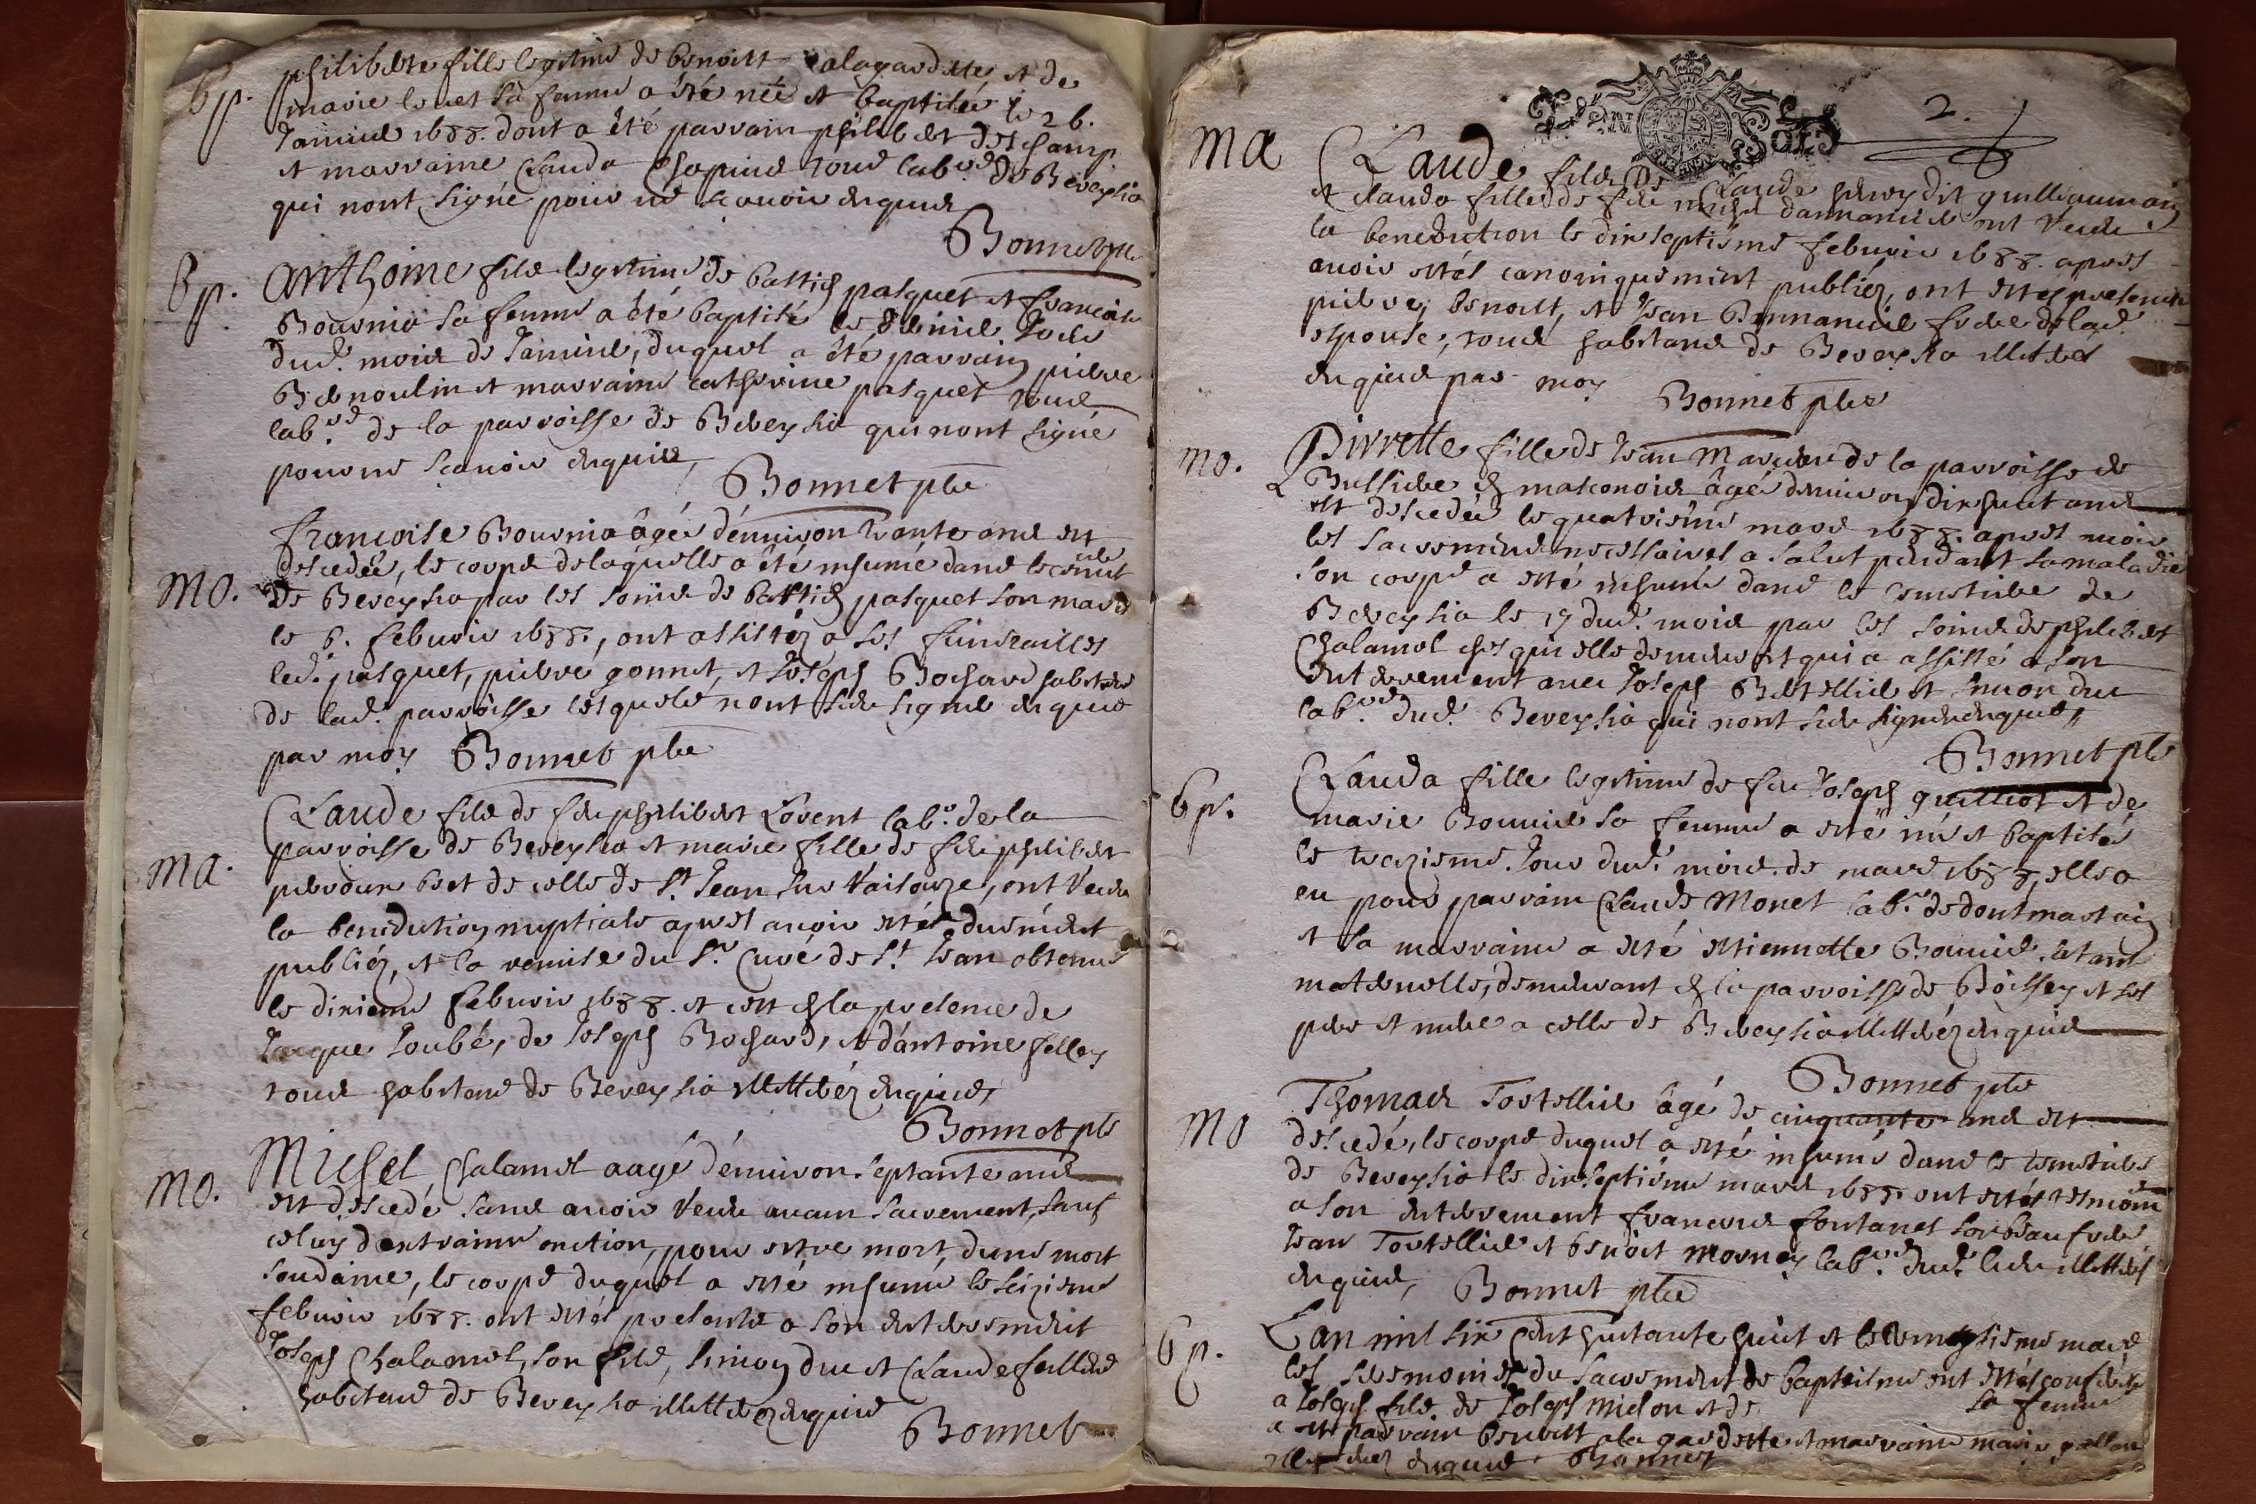 bp.
philiberte fille legitime de benoist alagardette et de
marie loret sa femme a été née et baptisée le 26.
Janvier 1688. dont a été parrain philibert deschamp
et marraine Clauda tous lab.rs de Bereysia
qui nont signé pour ne scavoir enquis
Bonnet ptre
Bp.
Anthoine fils legitime de bastien pasquet et francoise
Boursira sa femme a été baptisé le dernier Jour
dud. mois de Janvier, duquel a été parrain pierre
Bernoulin et marraine catherine pasquet tous
lab.rs de la parroisse de Bereysia qui nont signé
pour ne scavoir enquis,
Bonnet ptre
Mo.
francoise Boursira âgée d'environ trante ans est
descedée, le corps delaquelle a été inhumé dans le
de Bereysia par les soins de bastien pasquet son mary
le 6. febvrier 1688., ont assistéz a ses funerailles
led. pasquet, pierre gonnet, et Joseph Bochard habitans
de lad. parroisse lesquels nont sceu signer enquis
par moy Bonnet ptre
Ma.
Claude fils de feu philibert Lorent lab.r de la
parroisse de Bereysia et marie fille de feu philibert
et de celle de St Jean sur Raisouze, ont receu
la benediction nuptiale apres avoir estés duement
publiéz, et la remise du Sr. Curé de St. Jean obtenue
le dixieme febvrier 1688. et cest en la presence de
Jacque Joubé, de Joseph Bochard, et d'antoine felley
tous habitans de Bereysia illitteréz enquis,
Bonnet ptre
Mo.
Michel Chalamel aagé d'environ septante ans
est descedé sans avoir receu aucun sacrement, sauf
celuy d'extraime onction, pour estre mort, dune mort
soudaine, le corps duquel a esté inhumé le seizieme
febvrier 1688. ont estés presents a son enterrement
Joseph Chalamel, son fils, simon duc et Claude feillens
habitans de Bereysia illitteréz enquis
Bonnet
2.
Ma
Claude fils de Claude perey dit guillaumain
et clauda fille de feu michel dannancier ont receu
la benediction le dix septieme febvrier 1688. apres
avoir estés canoniquement publiéz, ont estés presents
pierre, benoist, et Jean Dannancier frere de lad.
espouse, tous habitans de Bereysia illiterés
enquis par moy
Bonnet ptre
Mo.
Pierrette fille de Jean Marcier de la parroisse de
Bussiere en masconois âgée denviron dixhuit ans
est descedée le quatrieme mars 1688. apres avoir
les sacremens necessaires a salut pendant sa maladie
son corps a esté inhumé dans le cimetiere de
Bereysia le 17 dud. mois par les soins de philibert
Chalamel chez qui elle demeuroit qui a assisté a son
enterrement avec Joseph Bertellier et simon duc
lab.rs dud. Bereysia qui nont sceu signer enquis,
Bonnet ptre
bp.
Clauda fille legitime de feu Joseph guilliot et de
marie Bouvier sa femme a esté née et baptisée
le treizieme Jour dud. mois de mars 1688, elle a
eu pour parrain Claude Monet lab.r de dommartin
et la marraine a esté estiennette Bouvier sa tante
maternelle, demeurant en la parroisse de Boissey et ses
pere et mere a celle de Bereysia illitteréz enquis
Bonnet ptre
Mo
Thomas Tortellier âgé de cinquante ans est
descedé, le corps duquel a esté inhumé dans le cimetiere
de Bereysia le dix septieme mars 1688. ont estés tesmoins
a son enterrement francois fontanel son beau frere
Jean Tortellier et benoist Morney lab.rs dud. lieu illitterés
enquis, Bonnet ptre
bp.
Lan mil six cent huitante huict et le mars
les ceremonies du sacrement de baptesme ont estés conferées
a Joseph fils de Joseph Michon et de sa femme
a esté parrain benoist alagardette et marraine marie
enquis Bonnet